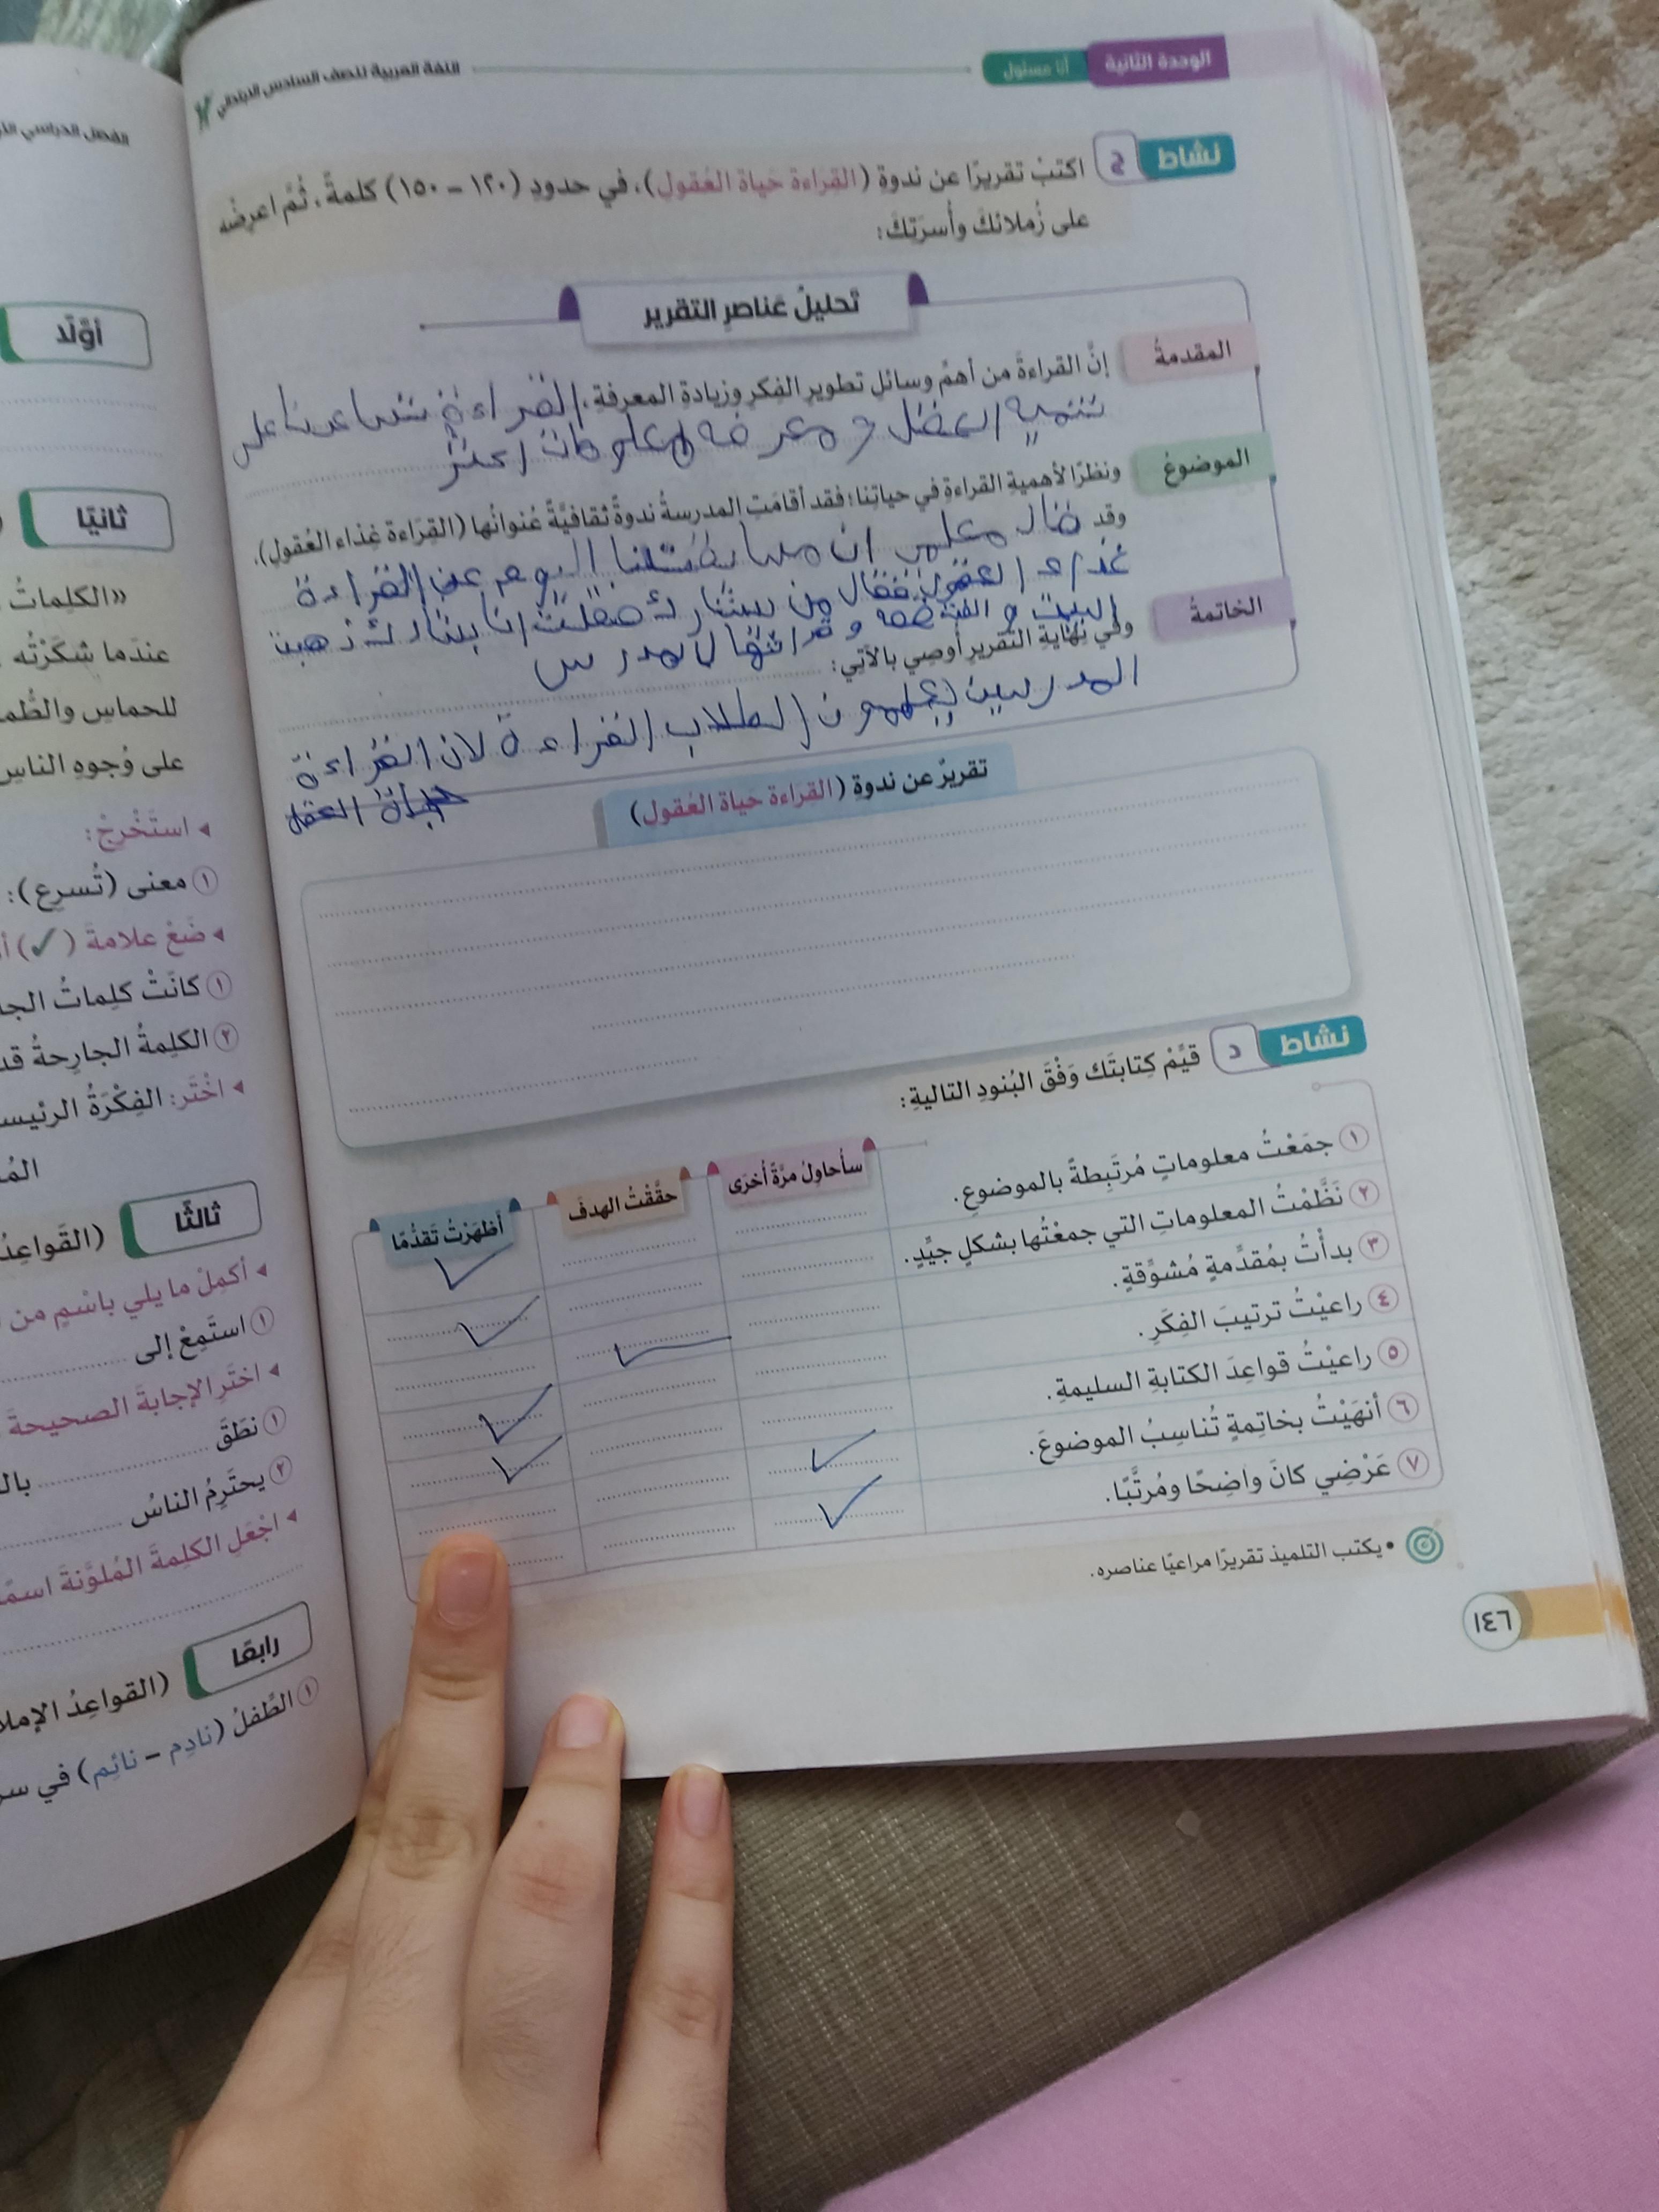 الوحدة الثانية أنا مسئول اللغة العربية للصف السادس الابتدائي
نشاط ج اكتبْ تقريرًا عن ندوةِ (القراءة حَياة العُقول)، في حدودِ (١٢٠ – ١٥٠) كلمةً، ثُمَّ اعرِضْه
على زُملائكَ وأُسرَتِكَ:
تَحليلُ عَناصرِ التقرير
المقدمةُ
إنَّ القراءةَ من أهمِّ وسائلِ تطويرِ الفِكرِ وزيادةِ المعرفةِ، القراءة تساعدنا على
تنمية العقل و معرفه المعلومات اكثر
الموضوعُ
ونظرًا لأهميةِ القراءةِ في حياتِنا؛ فقد أقامَتِ المدرسةُ ندوةً ثقافيَّةً عُنوانُها (القِرَاءة غِذاء العُقول).
وقد قال معلمى ان مسابقتنا اليوم عن القراءة
غذاء العقول فقال من ستشارك فقلت انا بشارك ذهبت
البيت و القصه و قرائتها لالمدرس
الخاتمةُ
وفي نهايةِ التقريرِ أُوصي بالآتي:
المدرسين يعلمون الطلاب القراءة لان القراءة
حياة العقل
تقريرٌ عن ندوةِ (القراءة حَياة العُقول)
نشاط د قيِّمْ كِتابتَك وَفْقَ البُنودِ التاليةِ:
سأُحاوِلُ مرَّةً أُخرَى حقَّقْتُ الهدفَ أَظهَرْتُ تَقدُّمًا
١ جمَعْتُ معلوماتٍ مُرتبِطةً بالموضوعِ.
٢ نَظَّمْتُ المعلوماتِ التي جمعْتُها بشكلٍ جيِّدٍ.
٣ بدأْتُ بمُقدِّمةٍ مُشوِّقةٍ.
٤ راعيْتُ ترتيبَ الفِكَرِ.
٥ راعيْتُ قواعِدَ الكتابةِ السليمةِ.
٦ أنهَيْتُ بخاتِمةٍ تُناسِبُ الموضوعَ.
٧ عَرْضِي كانَ واضِحًا ومُرتَّبًا.
• يكتب التلميذ تقريرًا مراعيًا عناصره.
١٤٦
الفصل الدراسي
أوَّلًا
ثانيًا
«الكلِماتُ
عندَما شكَرْتُه
للحماسِ
على وُجوهِ الناسِ
◂ استَخْرِجْ:
١ معنى (تُسرِع):
◂ ضَعْ علامةَ (✓)
١ كانَتْ كلِماتُ
٢ الكلِمةُ الجارِحةُ
◂ اخْتَر: الفِكْرَةُ
ثالثًا
◂ أكمِلْ ما يلي باسْمٍ من
١ استَمِعْ إلى
◂ اختَرِ الإجابةَ الصحيحةَ
١ نطَقَ
٢ يحتَرِمُ الناسُ
◂ اجْعَلِ الكلِمةَ المُلوَّنةَ
رابعًا
(القواعِدُ
١ الطِّفلُ (نادِم – نائِم) في